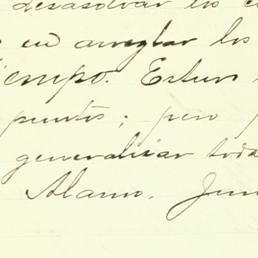 desasolvar los c
en arreglar los
iempo. Estuv
puntos; pero
generalizar toda
Alamo. Jun